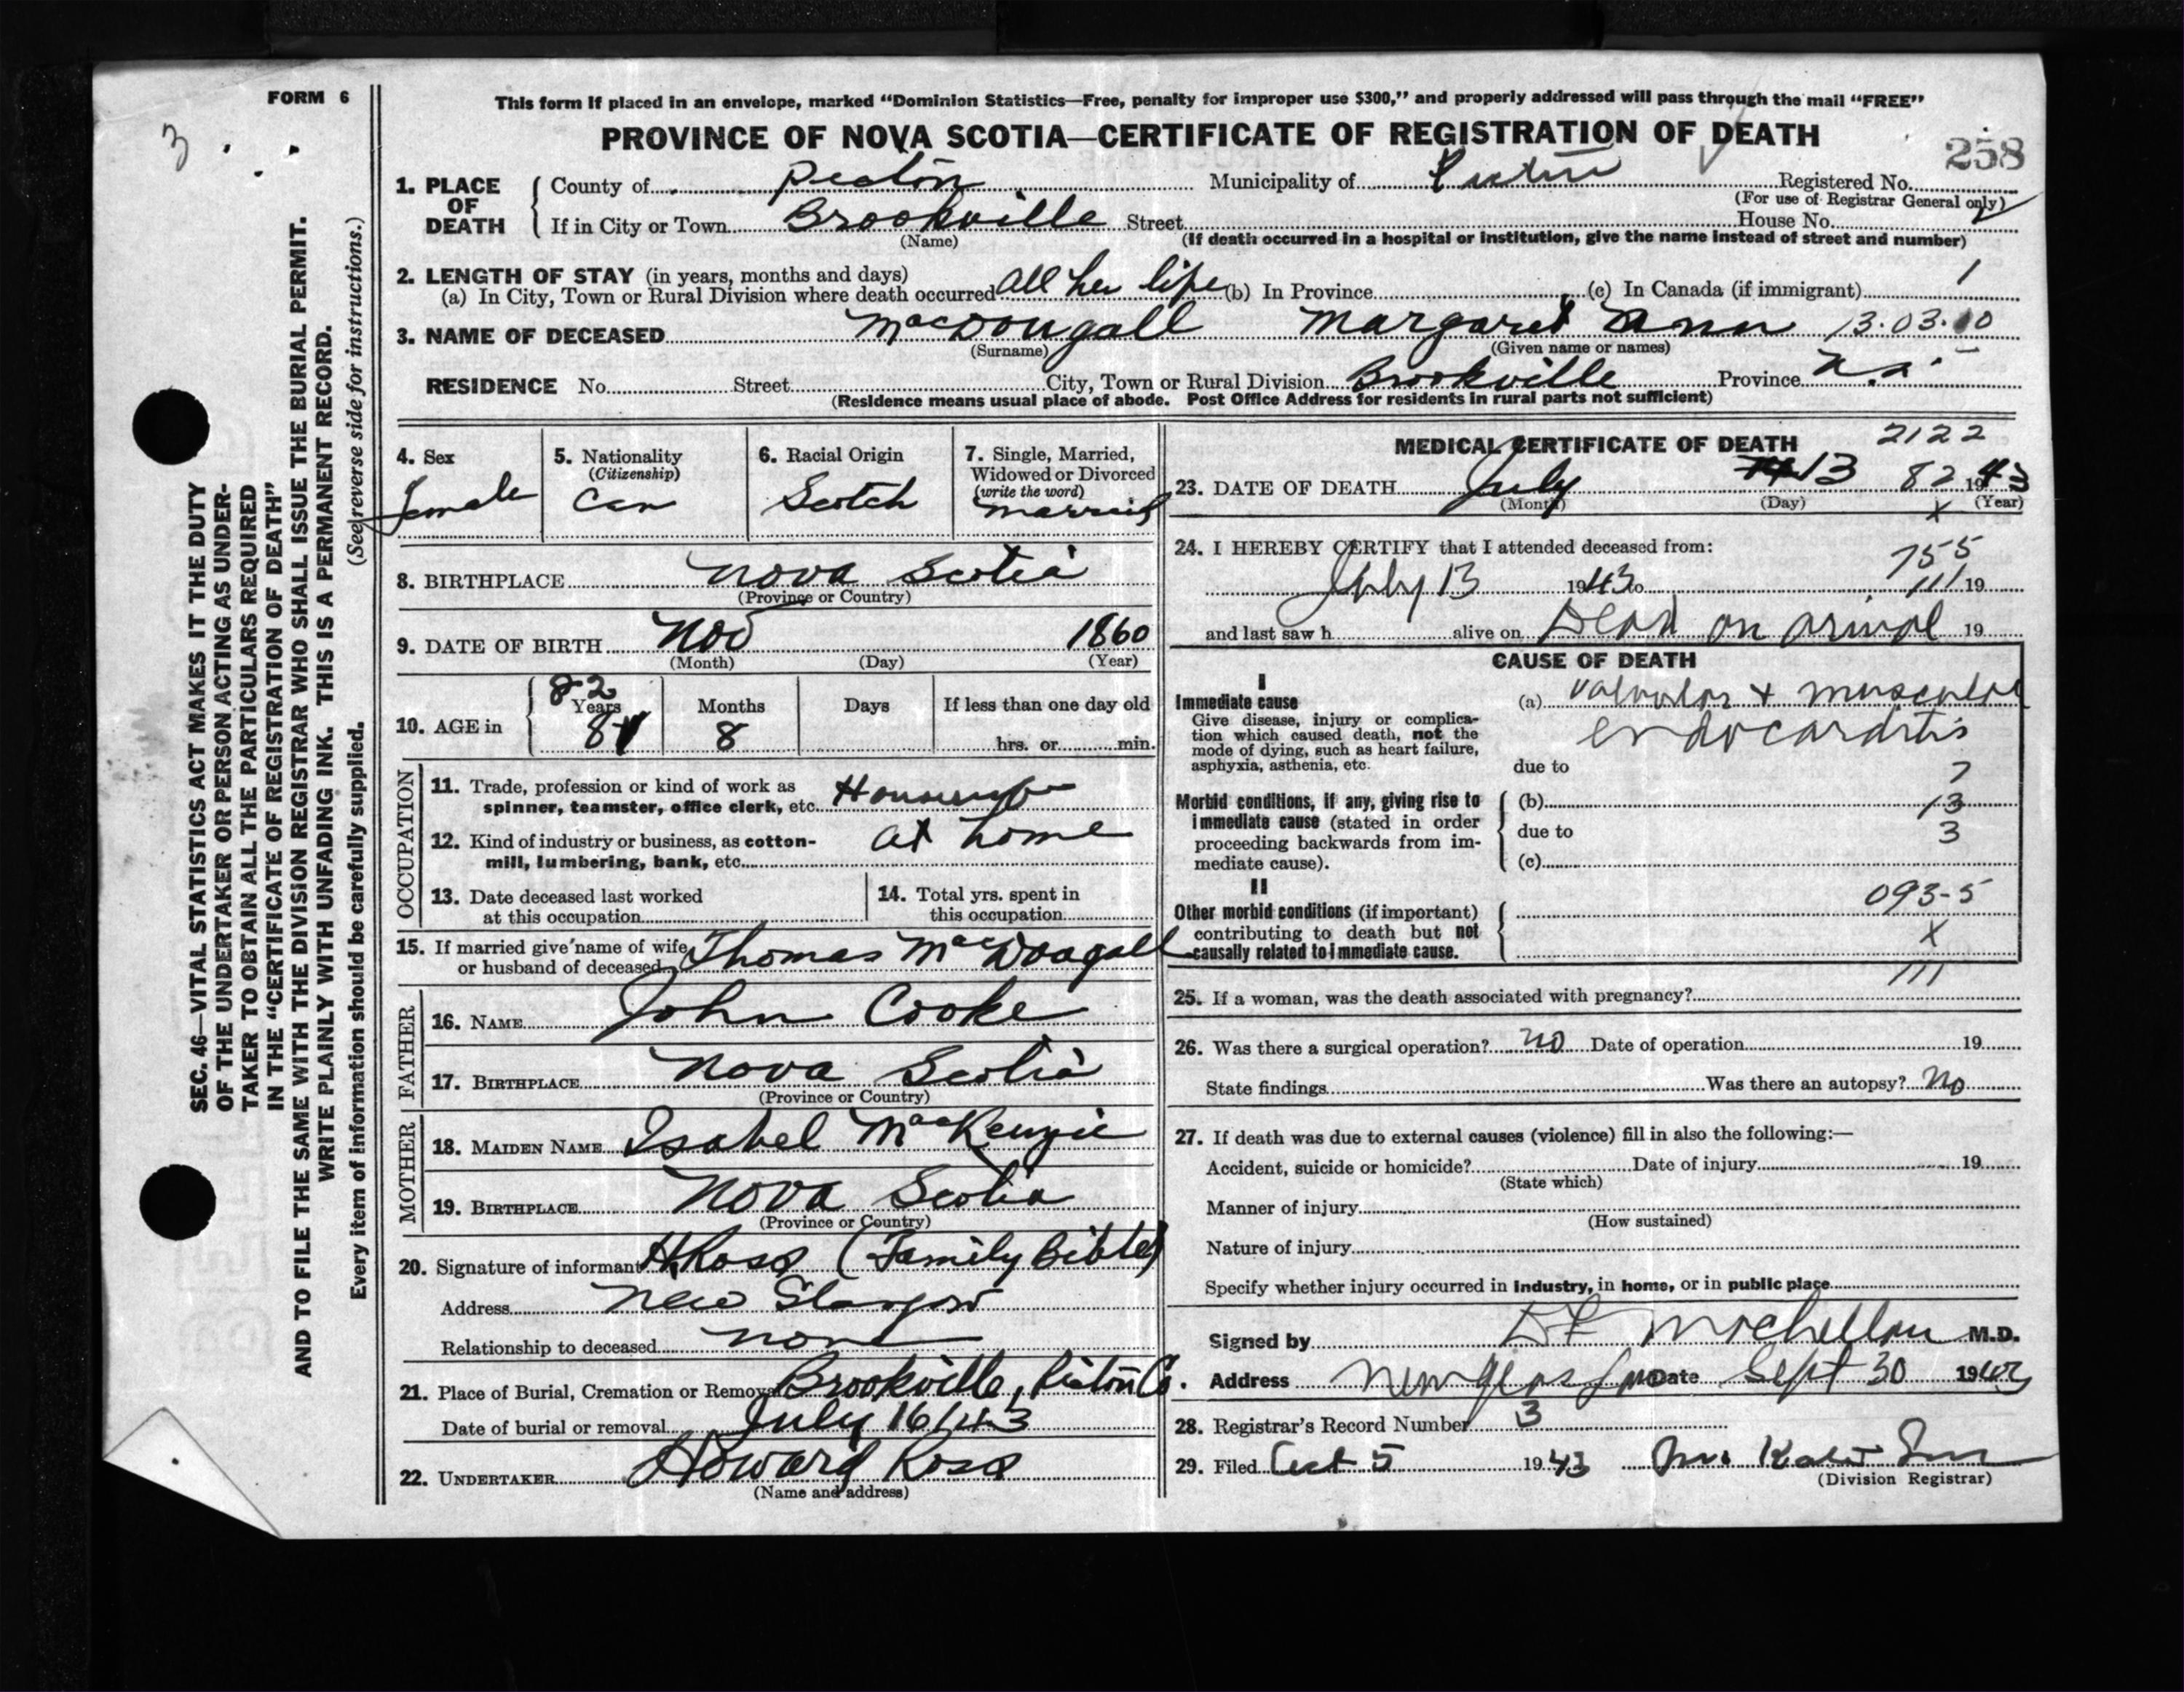 FORM 6
3
This form if placed in an envelope, marked "Dominion Statistics—Free, penalty for improper use $300," and properly addressed will pass through the mail "FREE"
PROVINCE OF NOVA SCOTIA—CERTIFICATE OF REGISTRATION OF DEATH
258
1. PLACE OF DEATH { County of Pictou Municipality of Pictou Registered No.
(For use of Registrar General only)
If in City or Town Brookville Street House No.
(Name) (If death occurred in a hospital or institution, give the name instead of street and number)
2. LENGTH OF STAY (in years, months and days)
(a) In City, Town or Rural Division where death occurred All her life (b) In Province (c) In Canada (if immigrant) 1
3. NAME OF DECEASED MacDougall Margaret Ann 13.03.10
(Surname) (Given name or names)
RESIDENCE No. Street City, Town or Rural Division Brookville Province N.S.
(Residence means usual place of abode. Post Office Address for residents in rural parts not sufficient)
4. Sex Female
5. Nationality (Citizenship) Can
6. Racial Origin Scotch
7. Single, Married, Widowed or Divorced (write the word) Married
8. BIRTHPLACE Nova Scotia
(Province or Country)
9. DATE OF BIRTH Nov 1860
(Month) (Day) (Year)
10. AGE in { Years 82 81 Months 8 Days If less than one day old hrs. or min.
OCCUPATION
11. Trade, profession or kind of work as spinner, teamster, office clerk, etc. Housewife
12. Kind of industry or business, as cotton-mill, lumbering, bank, etc. At home
13. Date deceased last worked at this occupation
14. Total yrs. spent in this occupation
15. If married give name of wife or husband of deceased Thomas MacDougall
FATHER
16. NAME John Cooke
17. BIRTHPLACE Nova Scotia
(Province or Country)
MOTHER
18. MAIDEN NAME Isabel MacKenzie
19. BIRTHPLACE Nova Scotia
(Province or Country)
20. Signature of informant H. Ross (Family Bible)
Address New Glasgow
Relationship to deceased none
21. Place of Burial, Cremation or Removal Brookville, Pictou Co.
Date of burial or removal July 16/43
22. UNDERTAKER Howard Ross
(Name and address)
MEDICAL CERTIFICATE OF DEATH 2122
23. DATE OF DEATH July 13 82 1943
(Month) (Day) (Year)
x
24. I HEREBY CERTIFY that I attended deceased from:
755
July 13 1943 to 111 19
and last saw h alive on Dead on arival 19
CAUSE OF DEATH
I
Immediate cause
Give disease, injury or complication which caused death, not the mode of dying, such as heart failure, asphyxia, asthenia, etc.
(a) valvular + muscular
endocarditis
due to 7
Morbid conditions, if any, giving rise to immediate cause (stated in order proceeding backwards from immediate cause).
(b) 13
due to 3
(c)
II
Other morbid conditions (if important) contributing to death but not causally related to immediate cause.
093-5
X
111
25. If a woman, was the death associated with pregnancy?
26. Was there a surgical operation? no Date of operation 19
State findings Was there an autopsy? no
27. If death was due to external causes (violence) fill in also the following:—
Accident, suicide or homicide? Date of injury 19
(State which)
Manner of injury
(How sustained)
Nature of injury
Specify whether injury occurred in industry, in home, or in public place
Signed by M.D.
Address New Glasgow Date Sept 30 1943
28. Registrar's Record Number 3
29. Filed Oct 5 1943
(Division Registrar)
SEC. 46—VITAL STATISTICS ACT MAKES IT THE DUTY
OF THE UNDERTAKER OR PERSON ACTING AS UNDER-
TAKER TO OBTAIN ALL THE PARTICULARS REQUIRED
IN THE "CERTIFICATE OF REGISTRATION OF DEATH"
AND TO FILE THE SAME WITH THE DIVISION REGISTRAR WHO SHALL ISSUE THE BURIAL PERMIT.
WRITE PLAINLY WITH UNFADING INK. THIS IS A PERMANENT RECORD.
Every item of information should be carefully supplied. (See reverse side for instructions.)